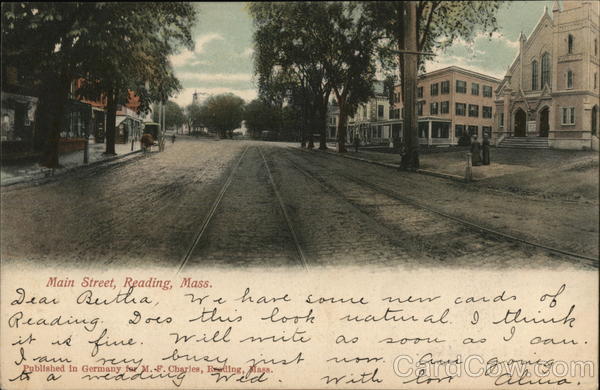 Main Street, Reading, Mass.
Dear Bertha, We have some new cards of
Reading. Does this look natural. I think
it is fine. Will write as soon as I can.
I am very busy just now. Am going
Published in Germany for M. F. Charles, Reading, Mass.
to a wedding Wed. With love Alice.
CardCow.com